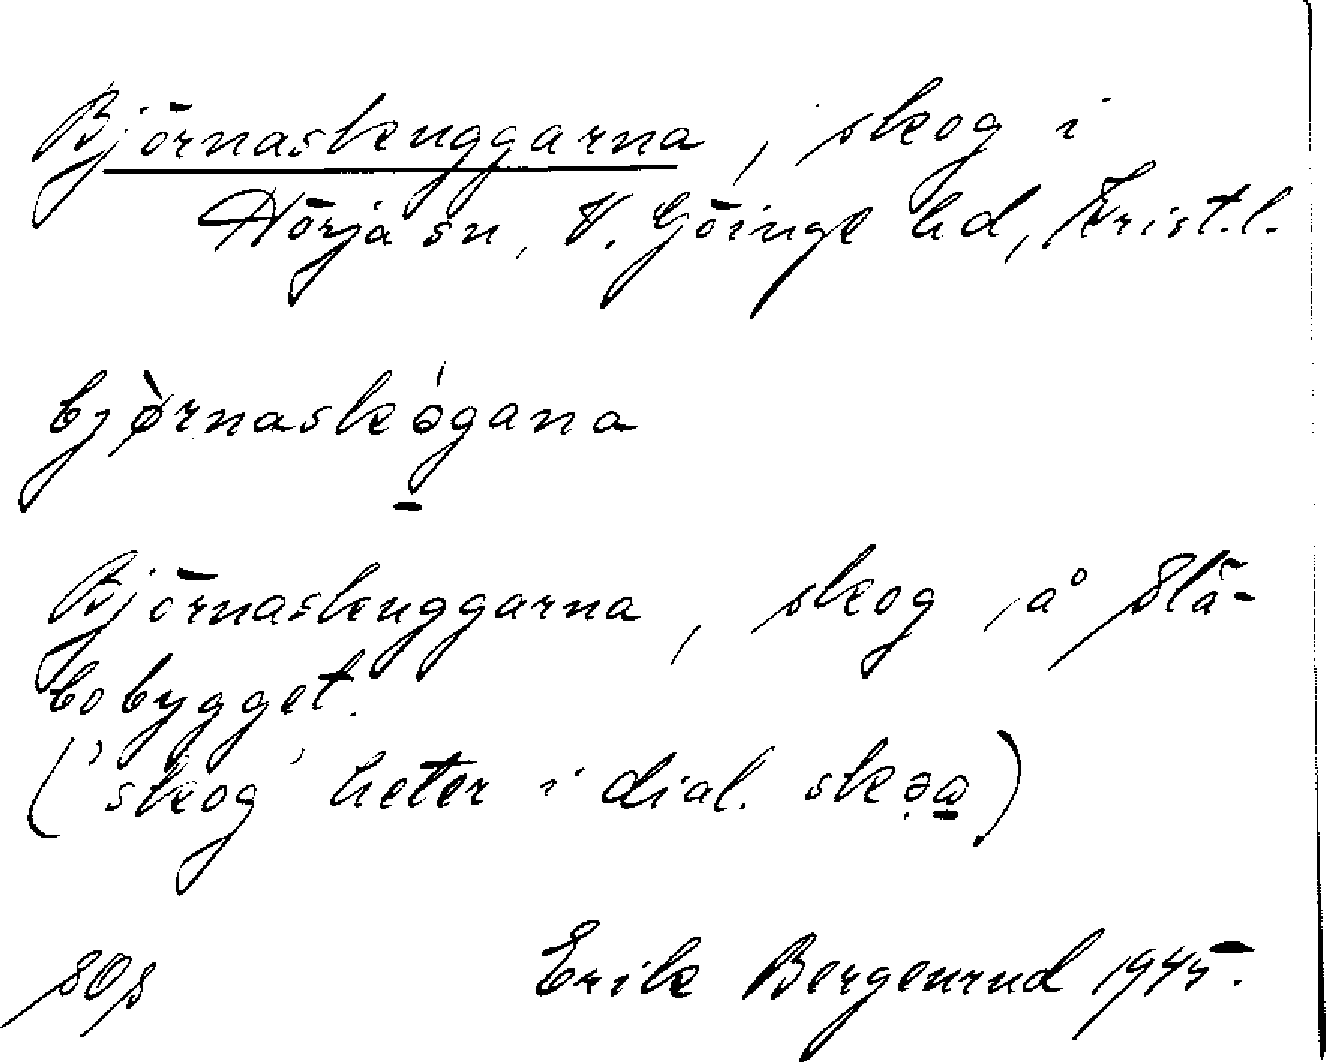 Björnaskuggarna, skog i
Hörja sn, V. Göinge hd, Krist.l.
bjø̀rnaskǿgana
Björnaskuggarna, skog å Slä-
bobygget.
('skog' heter i dial. skəa)
SOS Erik Bergenrud 1945.